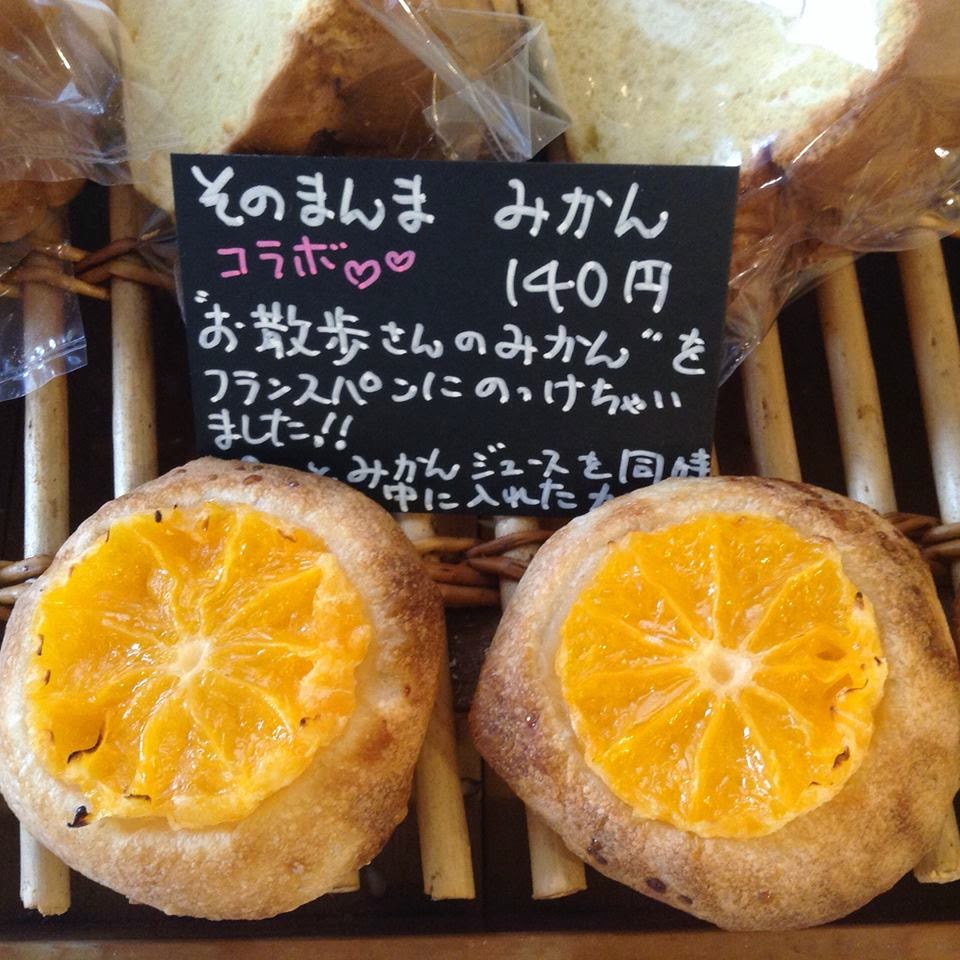 そのまんま みかん
コラボ♡♡ 140円
"お散歩さんのみかん"を
フランスパンにのっけちゃい
ました!!
と みかんジュースを同
中に入れた